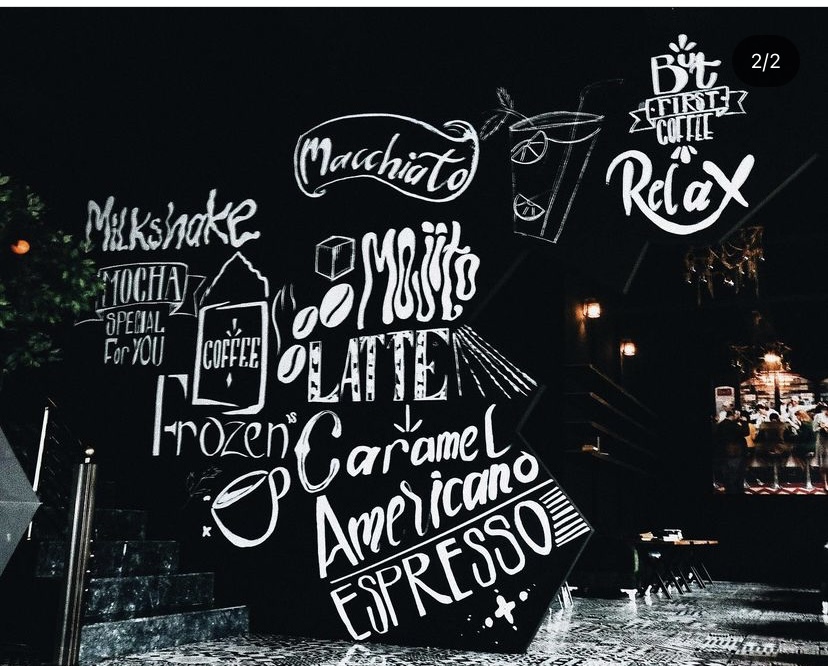 2/2
But
FIRST
COFFEE
Relax
Macchiato
Milkshake
MOCHA
SPECIAL
For YOU
COFFEE
Mojito
LATTE
Frozen's
Caramel
Americano
ESPRESSO